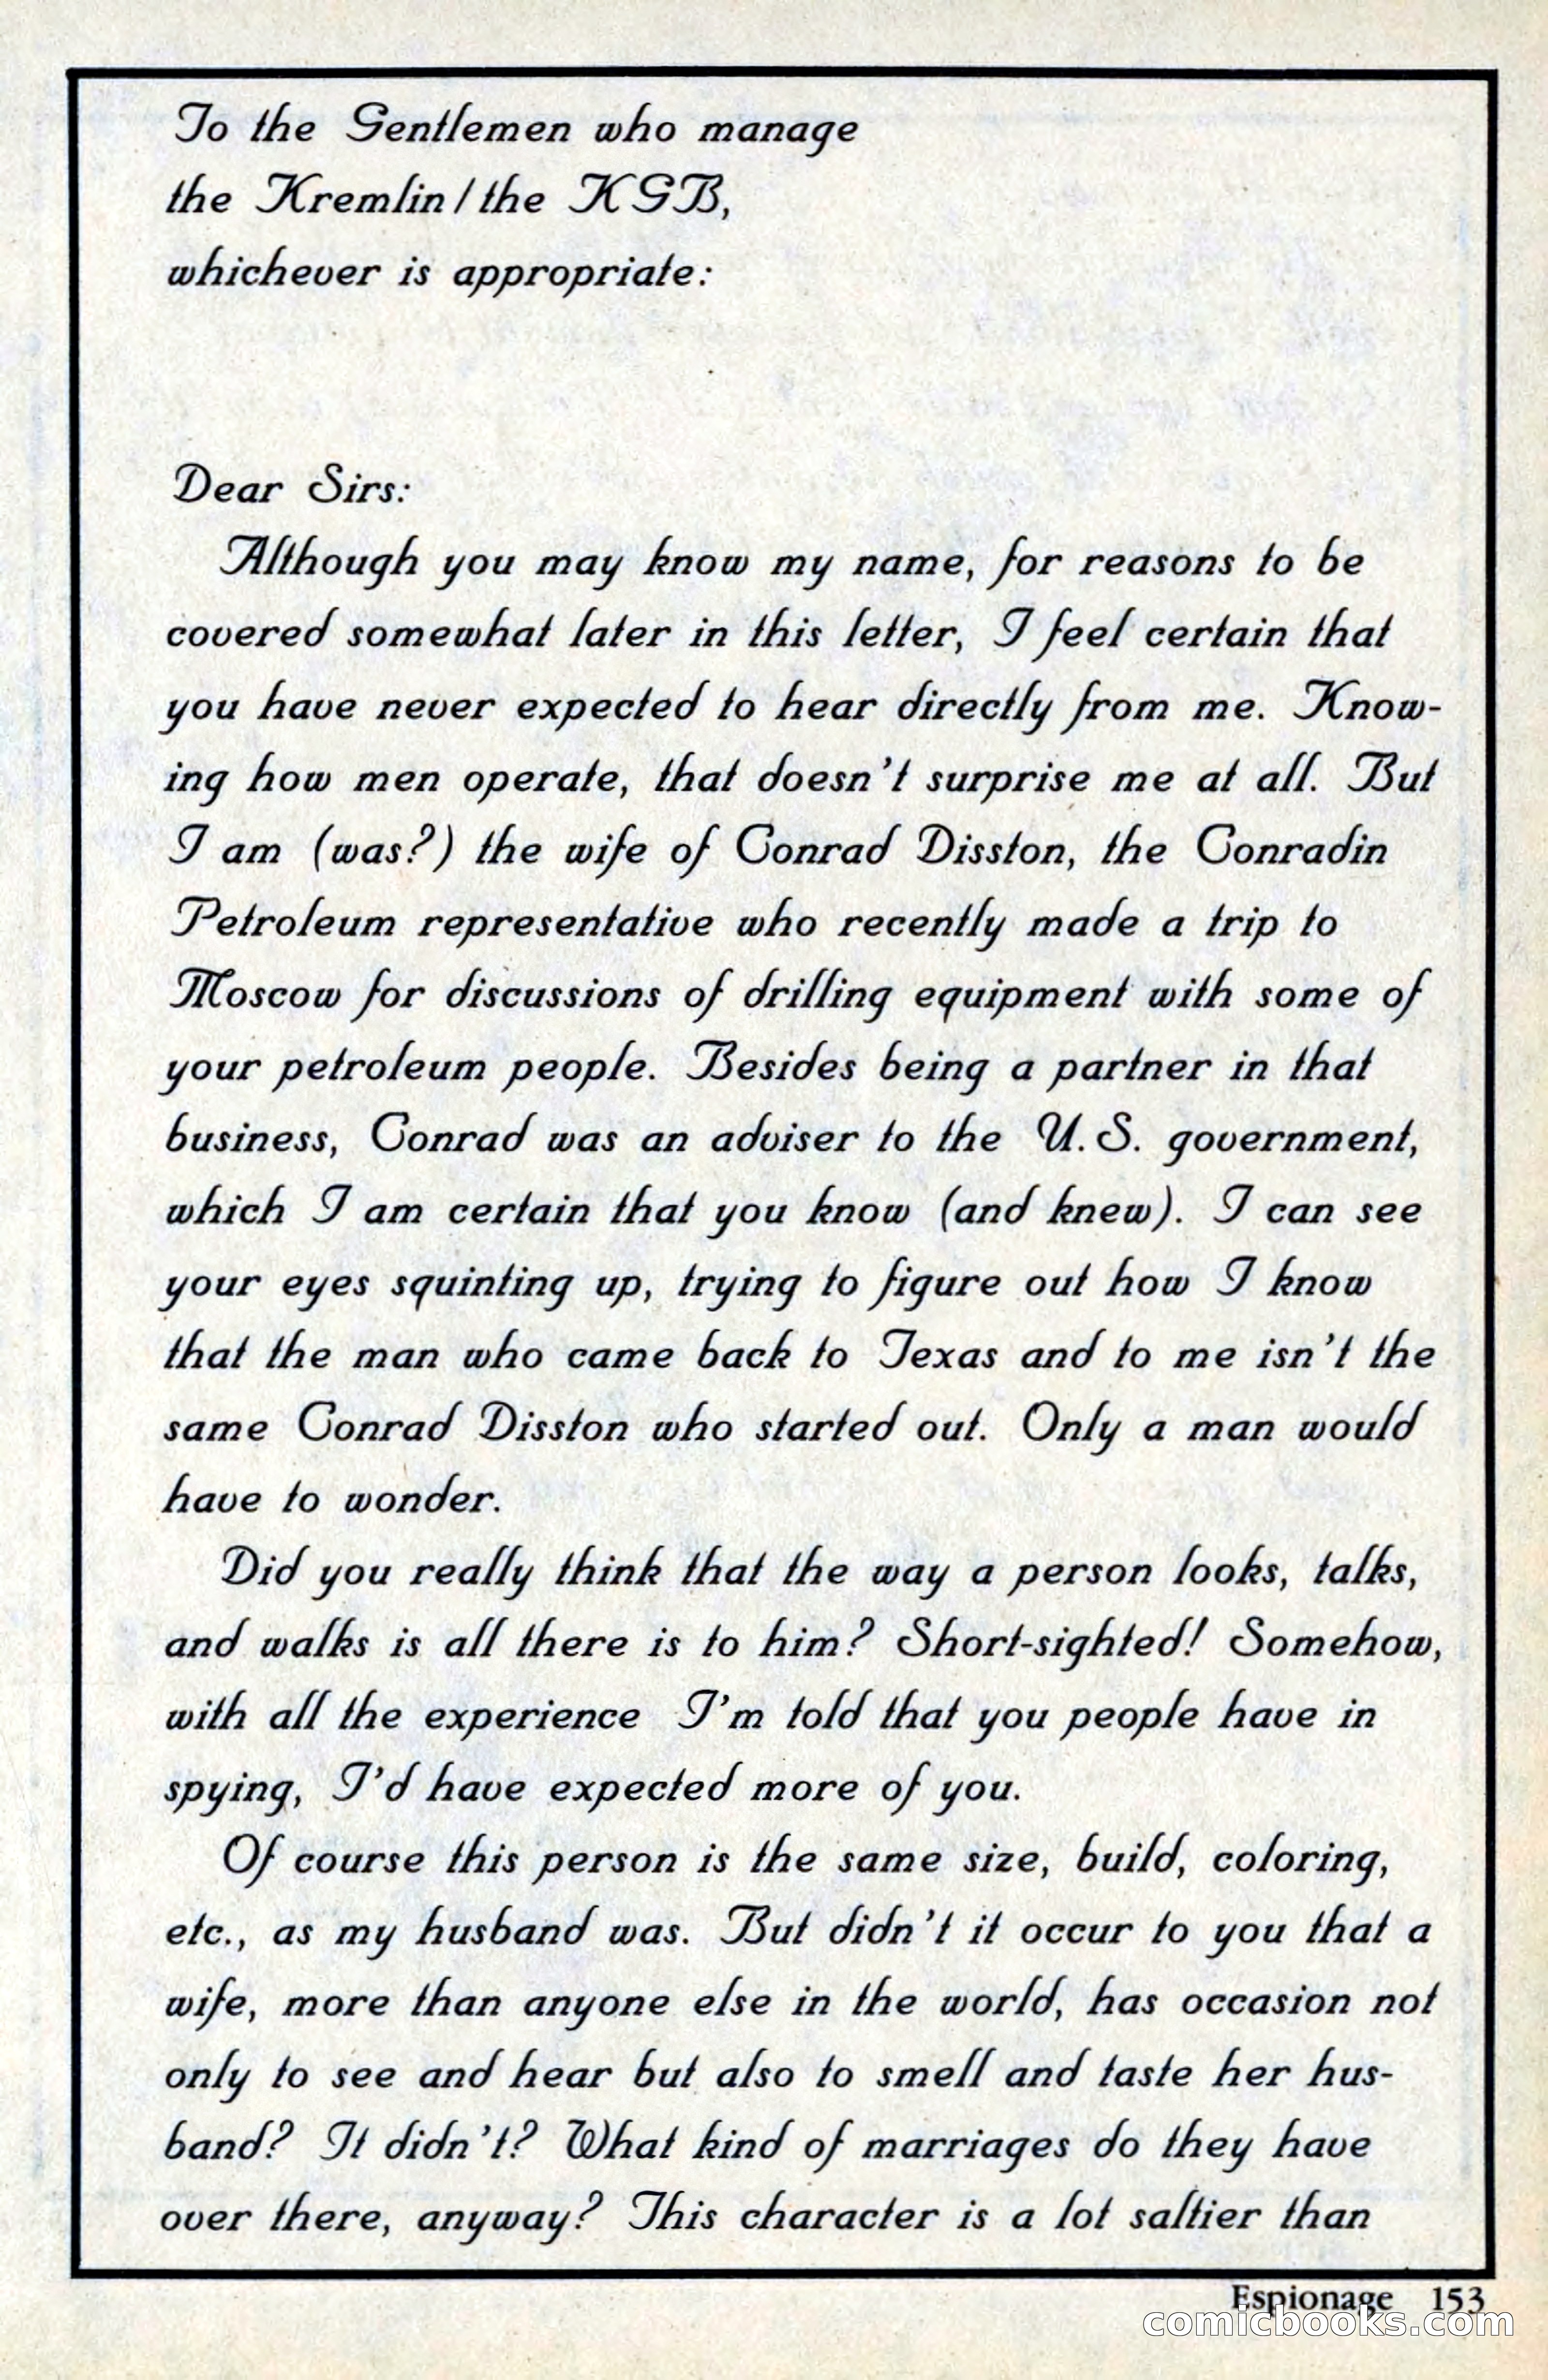 To the Gentlemen who manage
the Kremlin / the KGB,
whichever is appropriate:
Dear Sirs:
Although you may know my name, for reasons to be
covered somewhat later in this letter, I feel certain that
you have never expected to hear directly from me. Know-
ing how men operate, that doesn't surprise me at all. But
I am (was?) the wife of Conrad Disston, the Conradin
Petroleum representative who recently made a trip to
Moscow for discussions of drilling equipment with some of
your petroleum people. Besides being a partner in that
business, Conrad was an adviser to the U.S. government,
which I am certain that you know (and knew). I can see
your eyes squinting up, trying to figure out how I know
that the man who came back to Texas and to me isn't the
same Conrad Disston who started out. Only a man would
have to wonder.
Did you really think that the way a person looks, talks,
and walks is all there is to him? Short-sighted! Somehow,
with all the experience I'm told that you people have in
spying, I'd have expected more of you.
Of course this person is the same size, build, coloring,
etc., as my husband was. But didn't it occur to you that a
wife, more than anyone else in the world, has occasion not
only to see and hear but also to smell and taste her hus-
band? It didn't? What kind of marriages do they have
over there, anyway? This character is a lot saltier than
Espionage 153
comicbooks.com